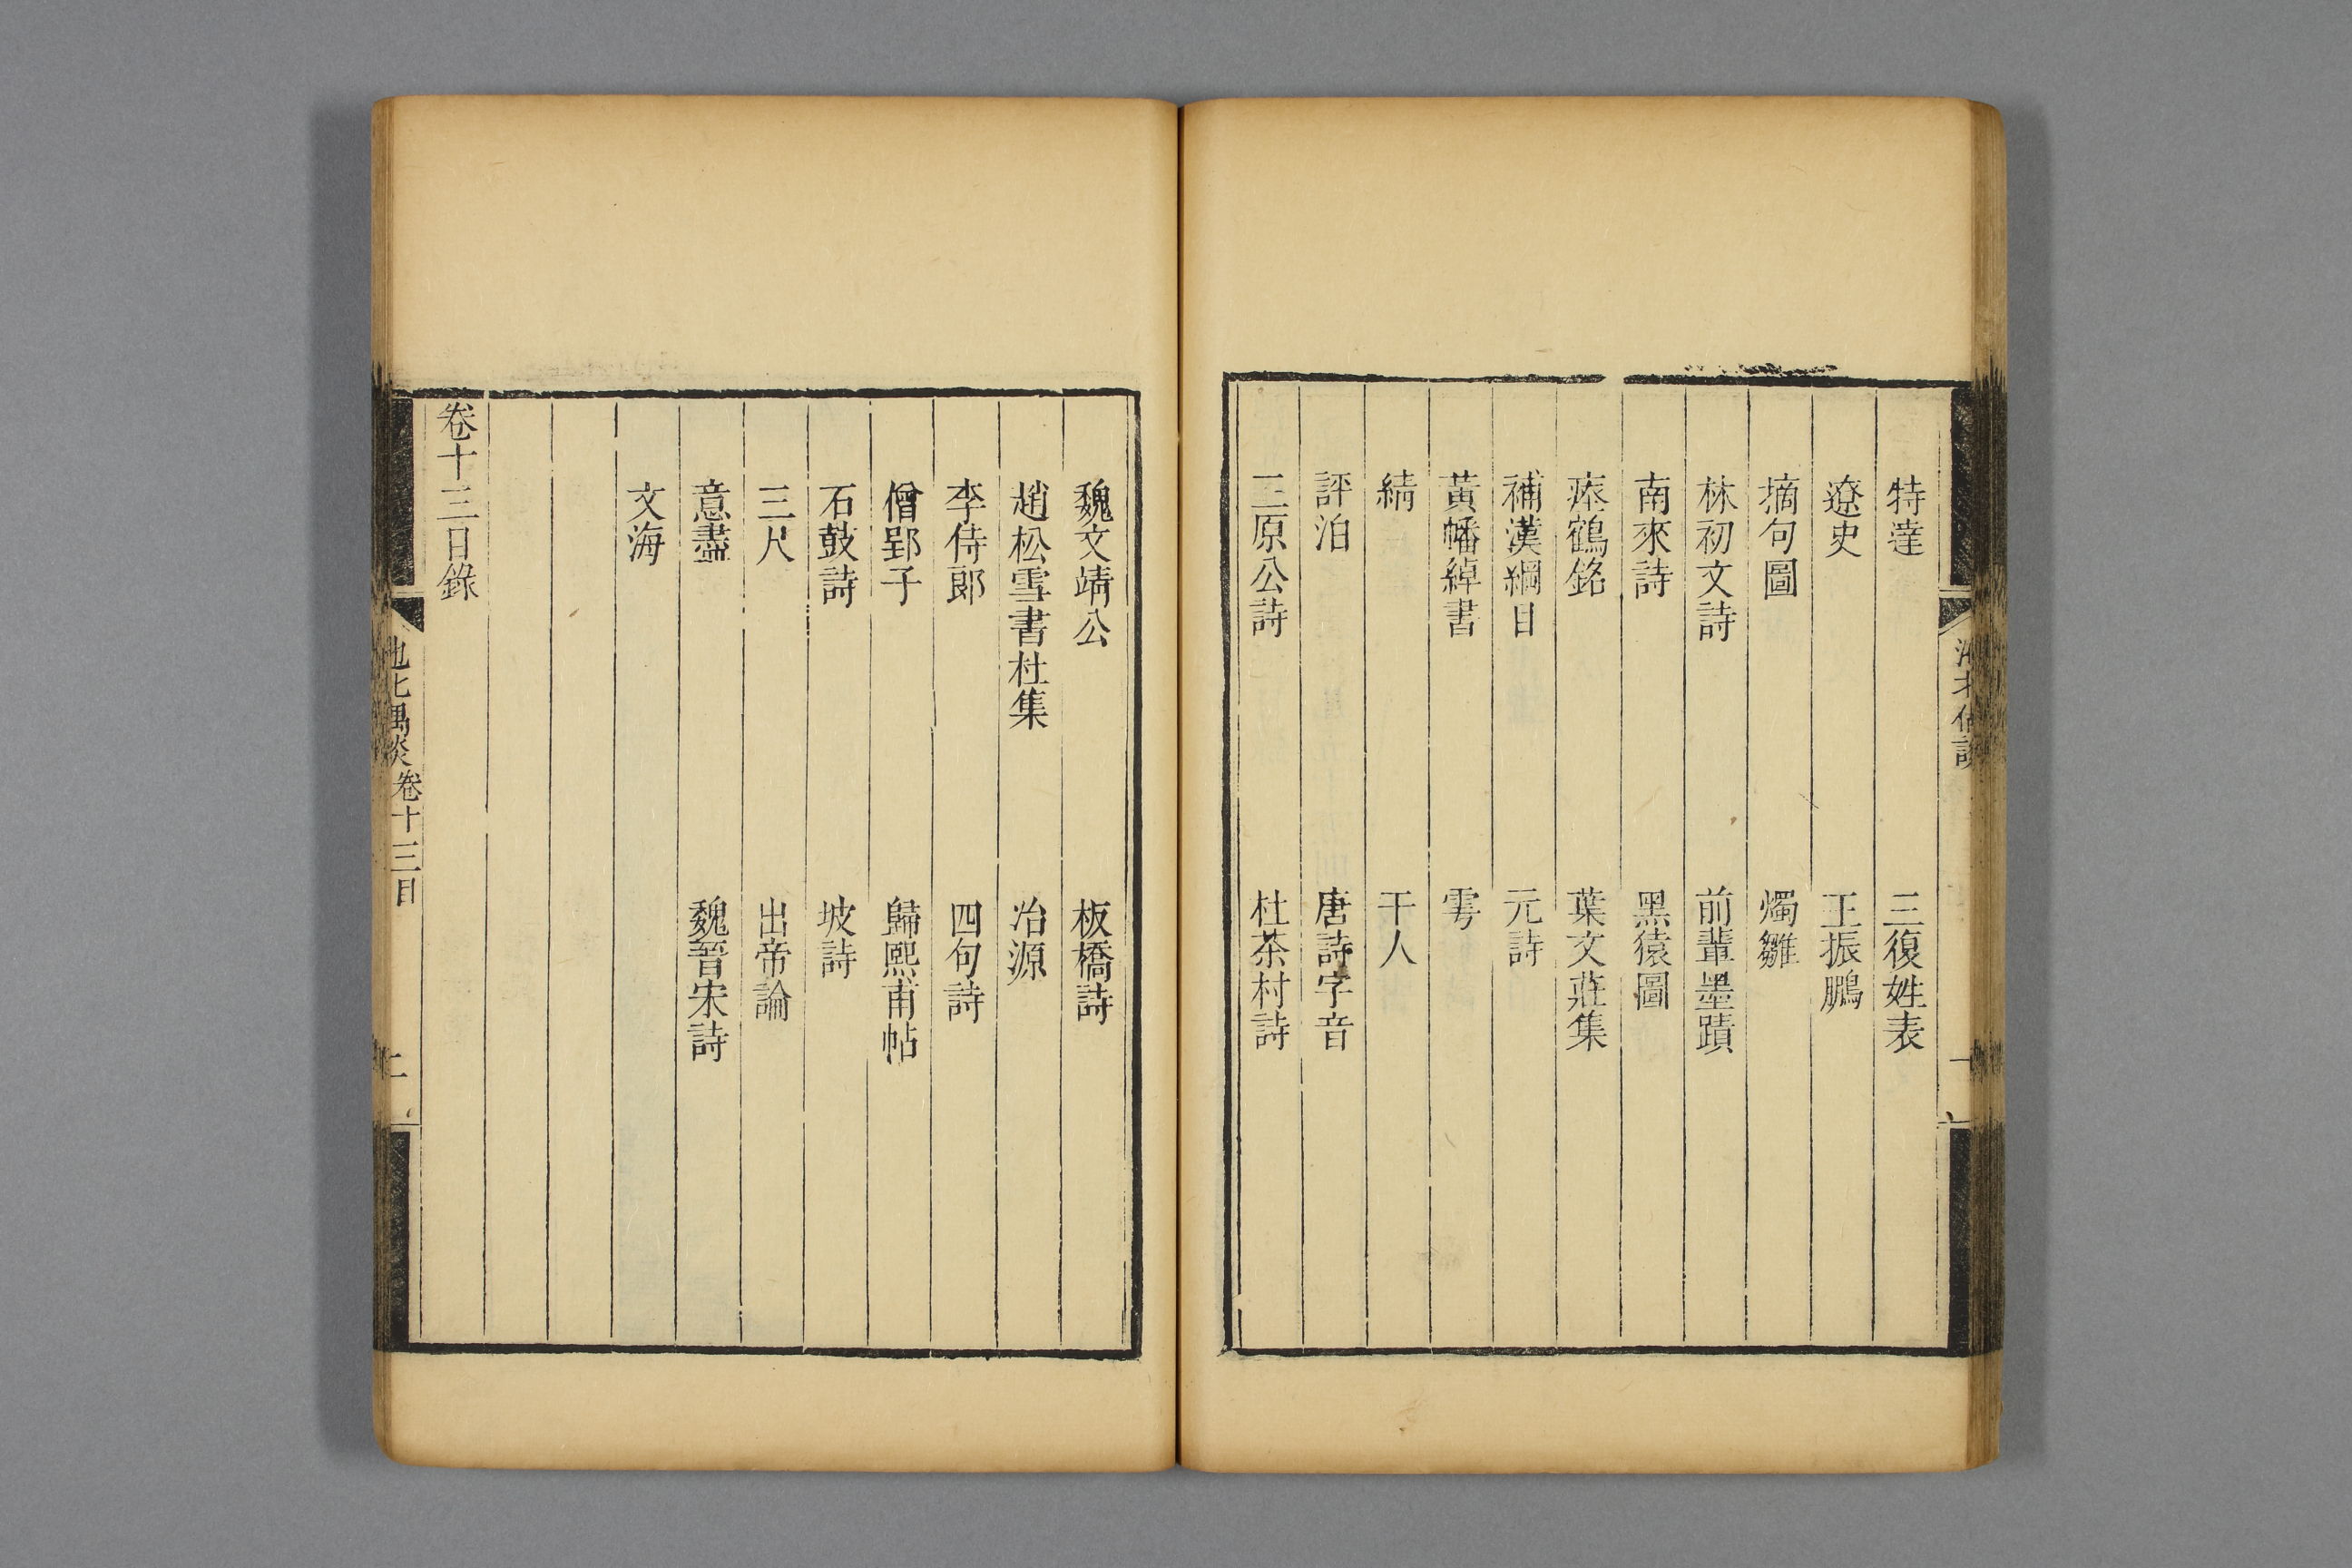 特達　三復姓表
遼史　王振鵬
摘句圖　燭雛
林初文詩　前輩墨蹟
南來詩　黑猿圖
瘞鶴銘　葉文莊集
補漢綱目　元詩
黃幡綽書　雩
綪　干人
評泊　唐詩字音
三原公詩　杜茶村詩
魏文靖公　板橋詩
趙松雪書杜集　冶源
李侍郎　四句詩
僧郢子　歸熙甫帖
石鼓詩　坡詩
三尺　出帝論
意盡　魏晉宋詩
文海
卷十三目錄
卷十三目
二